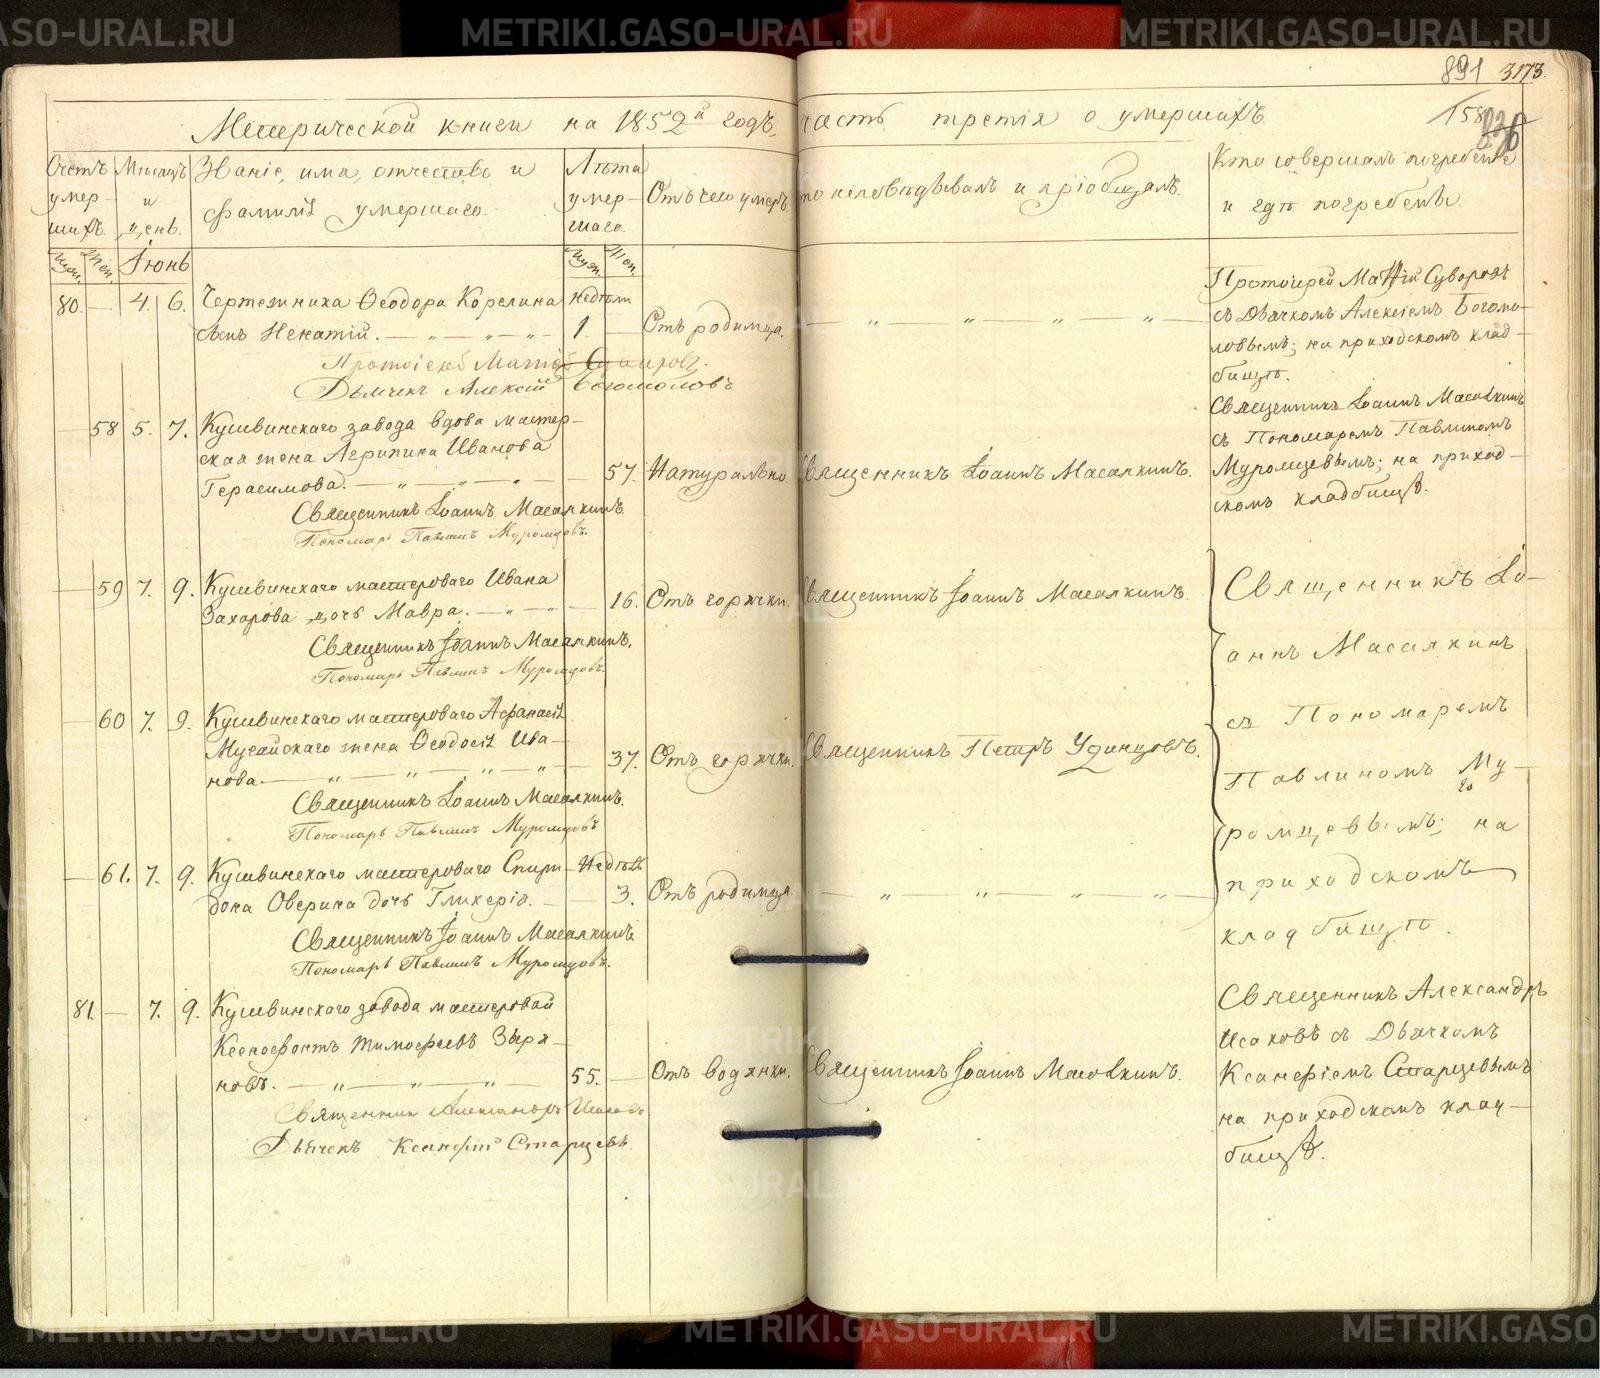 METRIKI.GASO-URAL.RU
891 3173.
Метрической книги на 1852й годъ, часть третія о умершихъ
158
Счетъ умершихъ.
Мѣсяцъ и день.
Званіе, имя, отчество и фамилія умершаго.
Лѣта умершаго.
Отъ чего умеръ.
Кто исповѣдывалъ и пріобщалъ.
Кто совершалъ погребеніе и гдѣ погребены.
Муж. Жен. Іюнь Муж. Жен.
80. — 4. 6. Чертежника Ѳеодора Корелина недѣли
сынъ Игнатій. — „ — „ — „ 1 — Отъ родимца. — „ — „ — „ — „ —
Протоіерей Матѳій Суворовъ
съ Дьячкомъ Алексіемъ Богомо-
ловымъ; на приходскомъ клад-
бищѣ.
Протоіерей Матѳій Суворовъ.
Дьячекъ Алексій Богомоловъ
— 58 5. 7. Кушвинскаго завода вдова мастер-
ская жена Агрипина Иванова
Герасимова. — „ — „ — „ — 57. Натурально. Священникъ Іоаннъ Масалкинъ.
Священникъ Іоаннъ Масалкинъ
съ Пономаремъ Павлиномъ
Муромцевымъ; на приход-
скомъ кладбищѣ.
Священникъ Іоаннъ Масалкинъ
Пономарь Павлинъ Муромцовъ.
— 59 7. 9. Кушвинскаго мастероваго Ивана
Захарова дочь Мавра. — „ — „ — 16. Отъ горячки. Священникъ Іоаннъ Масалкинъ.
Священникъ Іоаннъ Масалкинъ.
Пономарь Павлинъ Муромцовъ.
— 60 7. 9. Кушвинскаго мастероваго Афанасія
Мусайскаго жена Ѳеодосія Ива-
нова. — „ — „ — „ — „ — 37. Отъ горячки. Священникъ Петръ Удинцовъ.
Священникъ Іоаннъ Масалкинъ.
Пономарь Павлинъ Муромцовъ
— 61. 7. 9. Кушвинскаго мастероваго Спири- Недѣль
дона Оверина дочь Гликерія. — — 3. Отъ родимца. — „ — „ — „ — „ —
Священникъ Іоаннъ Масалкинъ
Пономарь Павлинъ Муромцовъ.
Священникъ Іо-
аннъ Масалкинъ
съ Пономаремъ
Павлиномъ Му-
ромцевымъ; на
приходскомъ
кладбищѣ.
81. — 7. 9. Кушвинскаго завода мастеровой
Ксенофонтъ Тимофеевъ Зыря-
новъ. — „ — „ — „ 55. — Отъ водянки. Священникъ Іоаннъ Масалкинъ.
Священникъ Александръ
Исаковъ съ Дьячкомъ
Ксанфіемъ Старцевымъ
на приходскомъ клад-
бищѣ.
Священникъ Александръ Исаковъ
Дьячекъ Ксанфій Старцевъ.